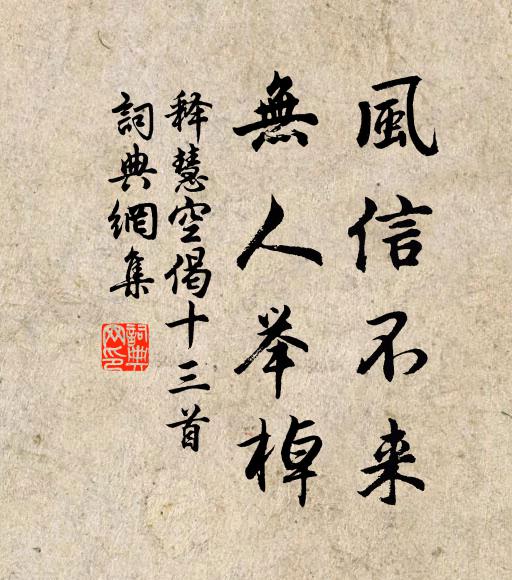 風信不来
無人举棹
释慧空偈十三首
詞典網集
詞典網印